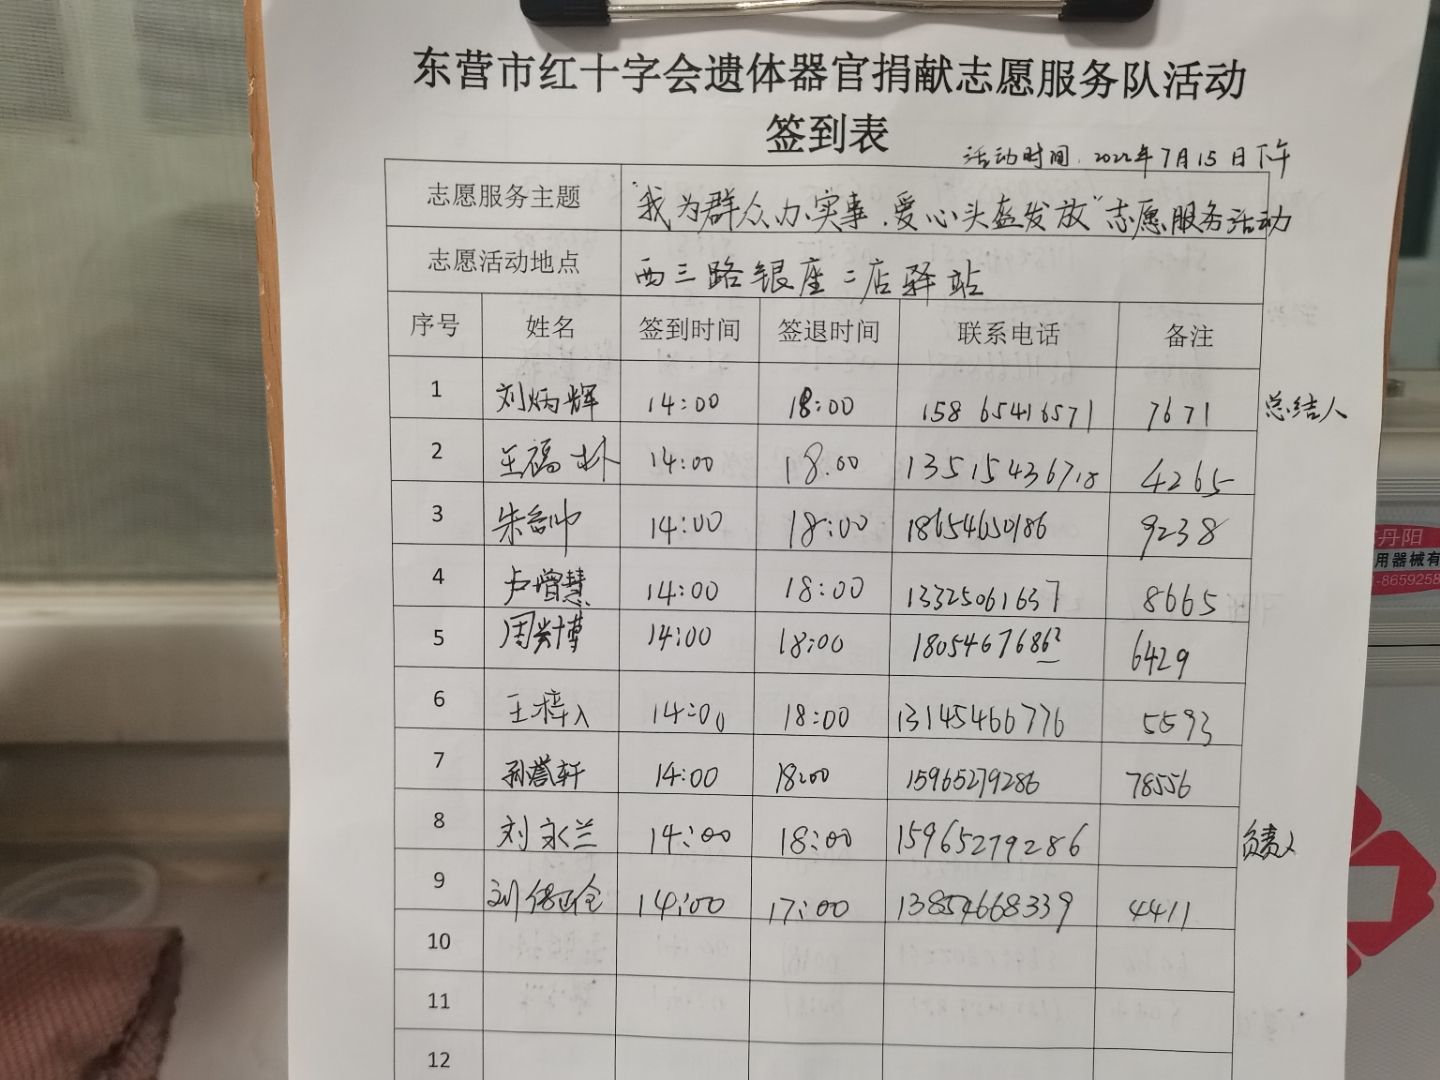 东营市红十字会遗体器官捐献志愿服务队活动
签到表
活动时间. 2022年7月15日下午
志愿服务主题 "我为群众办实事.爱心头盔发放"志愿服务活动
志愿活动地点 西三路银座二店驿站
序号 姓名 签到时间 签退时间 联系电话 备注
1 刘炳辉 14:00 18:00 15865416571 7671 总结人
2 王福朴 14:00 18.00 13515436718 4265
3 14:00 18:00 18654650186 9238
4 卢增慧 14:00 18:00 13325061637 8665
5 周兴博 14:00 18:00 18054676862 6429
6 14:00 18:00 13145466776 5593
7 孙誉轩 14:00 18:00 15965279286 78556
8 刘永兰 14:00 18:00 15965279286 负责人
9 14:00 17:00 13854668339 4411
10
11
12
丹阳
用器械有
-8659258